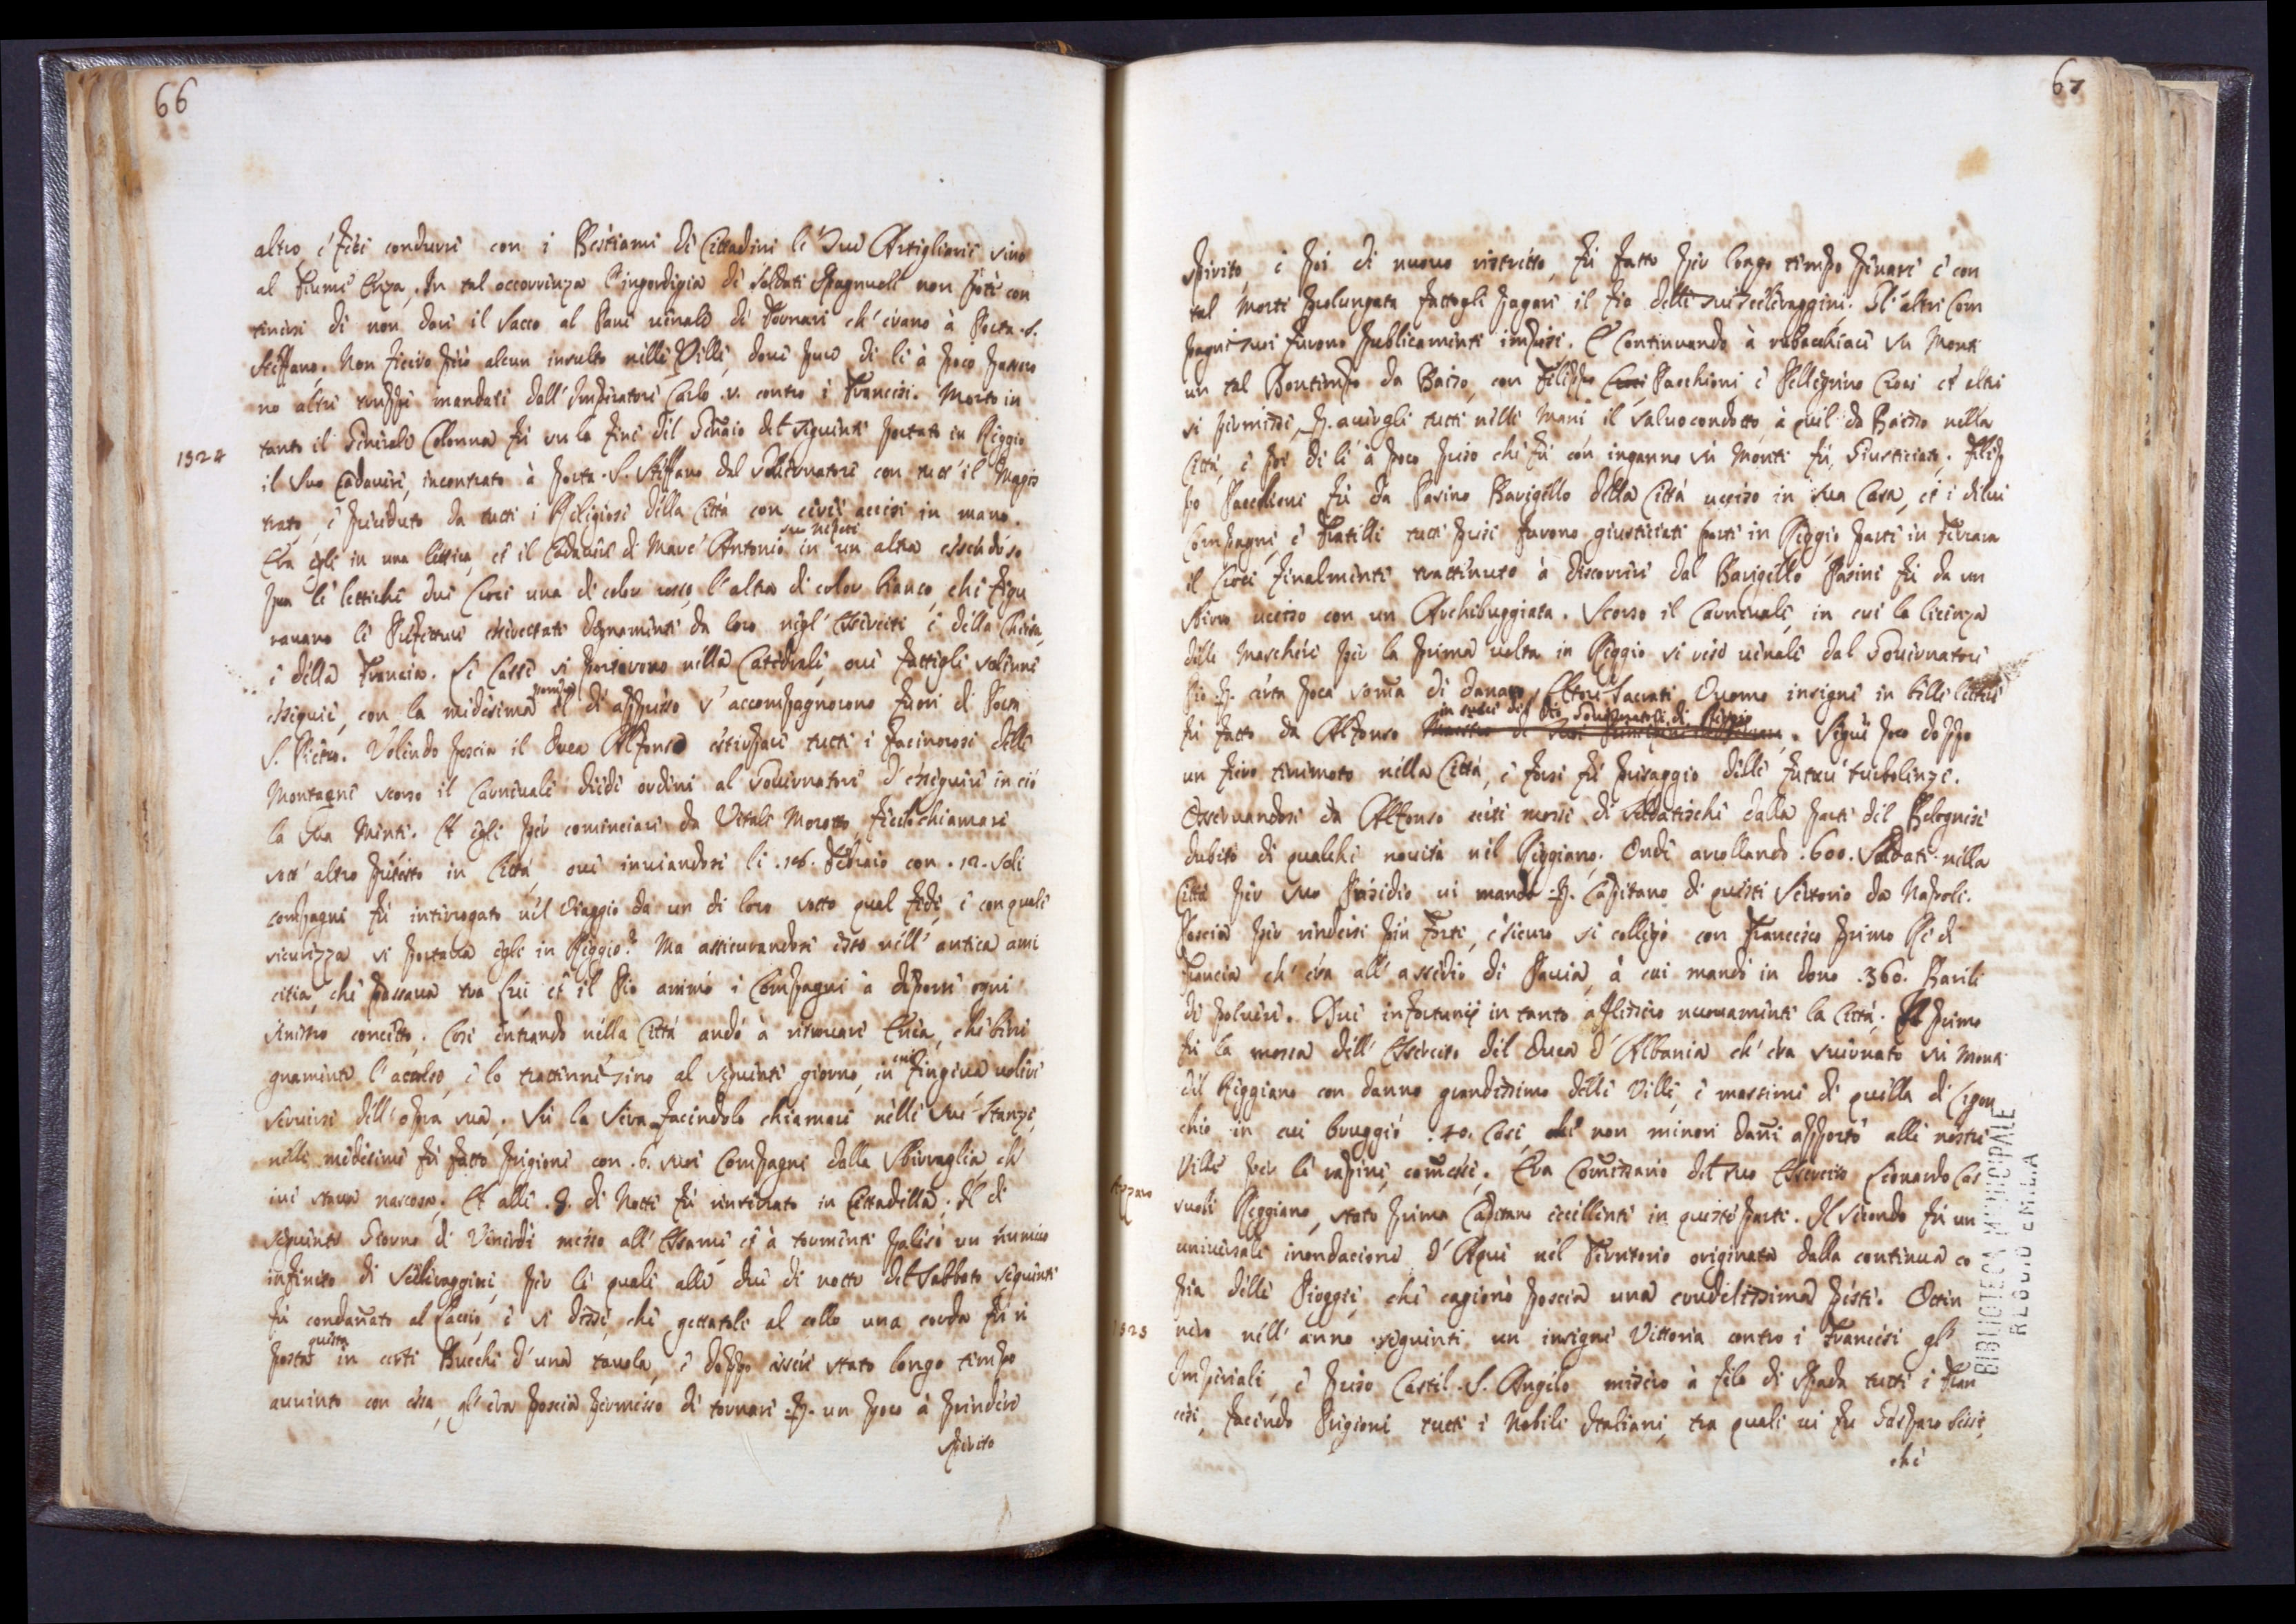 66
altro, e' fece condurre con i Bestiami de Cittadini le Sue Artiglierie sino
al Fiume Enza, In tal occorrenza l'ingordigia de soldati Spagnuoli non pote con
tenersi di non dare il Sacco al Pane venale de Fornari ch'erano à Porta .S.
Steffano. Non fecero però alcun insulto nelle Ville, dove pure di li à poco passaro
no altre truppe mandate dall'Imperatore Carlo .V. contro i Francesi. Morto in
1524
tanto il Generale Colonna fù su lo fine del Genaio del seguente portato in Reggio
il suo Cadavere, incontrato à Porta .S. Steffano dal Governatore con tutt'il Magis
trato, e preceduto da tutti i Religiosi della Città con cerei accesi in mano.
Era egli in una lettica, et il Cadavere di Marc'Antonio suo nepote in un altra essendo so
pra le lettiche due Croci una di color rosso, l'altra di color bianco, che figu
ravano le Prefetture esercitate degnamente da loro negl'Esserciti e della Chiesa,
e della Francia. Le Casse si portarono nella Catedrale, ove fattegli solenni
essequie, con la medesima pompa il dì appresso s'accompagnorono fuori di Porta
S. Pietro. Volendo poscia il Duca Alfonso estirpare tutti i facinorosi delle
Montagne scorso il Carnevale diede ordine al Governatore d'esseguire in ciò
la sua Mente. Et egli per cominciare da Vitale Morotto, fecelo chiamare
sott'altro pretesto in Città, ove inviandosi li .16. Febraio con .12. soli
compagni fù interrogato nel Viaggio da un di loro sotto qual fede, e con quale
sicurezza si portava egli in Reggio? Ma assicurandosi esso nell'antica ami
citia, che passava tra lui, et il Pio animò i Compagni à deporre ogni
sinistro concetto. Così entrando nella Città andò à ritrovare Enea, che beni
gnamente l'accolse, e lo trattenne sino al seguente giorno, in cui fingeva volere
servirsi dell'opra sua. Su la Sera facendolo chiamare nelle sue Stanze,
nelle medesime fù fatto prigione con .6. suoi Compagni dalla Sbirraglia, ch'
ivi stava nascosa. Et alle .8. di Notte fù inserrato in Cittadella. Il dì
seguente Giorno di Venerdì messo all'Essame et à tormenti palesò un numero
infinito di Sceleraggini, per le quali alle due di notte del Sabbato seguente
fù condanato al laccio, e si disse, che gettatoli al collo una corda fù ri
posta questa in certi Buchi d'una tavola, e doppo essere stato longo tempo
avvinto con essa, gl'era poscia permesso di tornare .p. un poco à prendere
spirito
67
spirito, e poi di nuovo ristretto, fù fatto per longo tempo penare e con
tal Morte prolungata fattogli pagare il fio delle sue sceleraggini. Gl'altri Com
pagni suoi furono publicamente impesi. E Continuando à rubacchiare su Monti
un tal Bontempo da Baiso, con Filippo Pacchioni, e Pellegrino Croci et altri
si permisse, p. avergli tutti nelle Mani il salvocondotto, à quel da Baiso nella
Città, e poi di li à poco preso che fù con inganno sù Monti fù Giusticiato. Filip
po Pacchioni fù da Pasino Barigello della Città ucciso in sua Casa, et i dilui
Compagni, e Fratelli tutti presi furono giusticiati parte in Reggio parte in Ferrara
il Croci finalmente trattenuto à discorrere dal Barigello Pasini fù da un
Sbirro ucciso con un Archibuggiata. Scorso il Carnevale, in cui la licenza
delle Maschere per la prima volta in Reggio si rese venale dal Governatore
Pio .p. certa poca soma di danaro, Ettore Sacrati Duomo insigne in belle lettere
fù fatto da Alfonso in vece del Pio Governatore di Reggio. Seguì poco doppo
un fiero terremoto nella Città, e forse fù presaggio delle future turbolenze.
Osservandosi da Alfonso certe mosse di Soldatesche dalla parte del Bolognese
dubitò di qualche novità nel Reggiano. Onde arollando .600. Soldati nella
Città per suo Presidio vi mandò .p. Capitano di questi Vittorio da Napoli.
Poscia per rendersi più forte, e sicuro si collegò con Francesco primo Rè di
Francia ch'era all'assedio di Pavia, à cui mandò in dono .360. Barili
di polvere. Due infortunij in tanto aflissero nuovamente la Città. Il primo
fù la mossa dell'Essercito del Duca d'Albania ch'era svernato sù Monti
del Reggiano con danno grandissimo delle Ville, e massime di quella di Ligon
chio in cui bruggiò .40. Case, che non minori dani apportò alle nostre
Ville per le rapine, comesse. Era Comissario del suo Essercito Leonardo Cas
Azzaro
suoli Reggiano, stato prima Capitano eccellente in queste parti. Il secondo fù un
universale inondacione d'Aque nel Territorio originata dalla continua co
pia delle Pioggie, che cagionò poscia una crudelissima peste. Otten
1525
nero nell'anno seguente un insigne Vittoria contro i Francesi gl'
Imperiali, e preso Castel .S. Angelo missero à filo di Spada tutti i Fran
cesi, facendo Prigioni tutti i Nobili Italiani, tra quali vi fu Gasparo Sessi,
che
BIBLIOTECA MUNICIPALE
REGGIO EMILIA